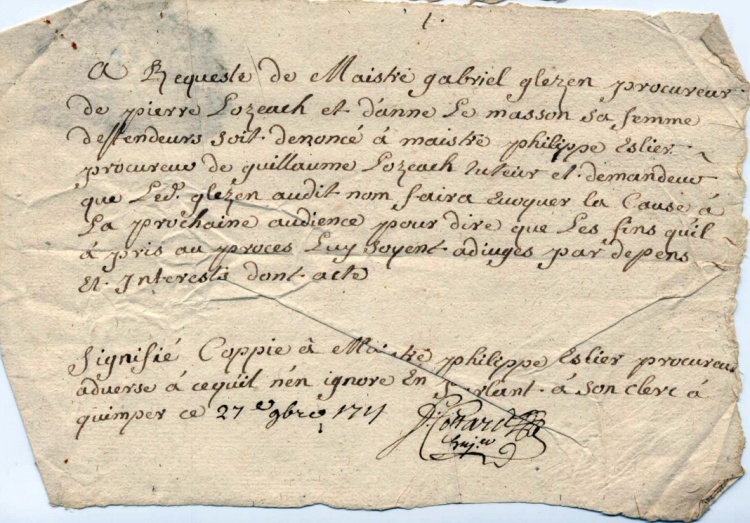 1.
A Requeste de Maistre gabriel glezen procureur
de pierre Lozeach et d'anne Le masson sa femme
deffendeurs soit denoncé à maistre philippe Eslier
procureur de guillaume Lozeach tuteur et demandeur
que Led. glezen audit nom faira Evoquer la Cause à
La prochaine audience pour dire que Les fins qu'il
à pris au proces Luy soyent adiugés par depens
Et Interests dont acte
Signifié Coppie à Maistre philippe Eslier procureur
adverse à cequil n'en ignore En parlant à son clerc à
quimper ce 27e 9bre